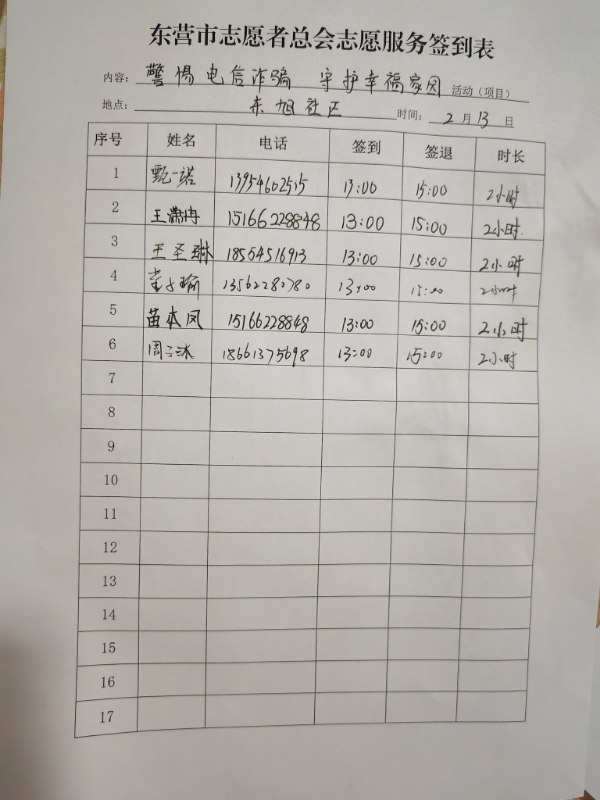 东营市志愿者总会志愿服务签到表
内容：警惕电信诈骗 守护幸福家园 活动（项目）
地点：东旭社区 时间：2月13日
序号 姓名 电话 签到 签退 时长
1 甄一诺 13954602515 13:00 15:00 2小时
2 王潇冉 15166228848 13:00 15:00 2小时
3 王圣琳 18554516913 13:00 15:00 2小时
4 董子瑜 13562282780 13:00 15:00 2小时
5 苗本凤 15166228848 13:00 15:00 2小时
6 周子沐 18661375698 13:00 15:00 2小时
7
8
9
10
11
12
13
14
15
16
17